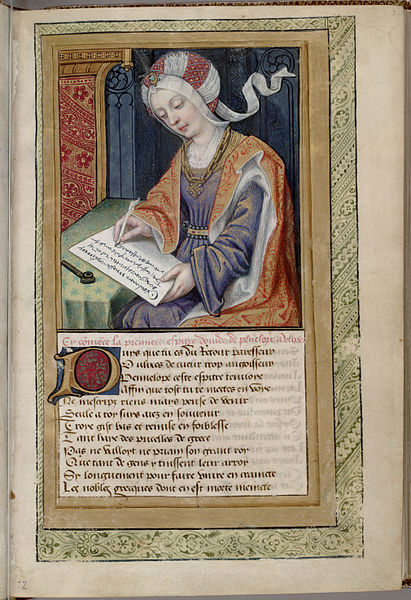 Cy cõmẽce la premiere espitre dovide de penelope a vlixes
Puis que tu es du Retour paresseux
O ulixes de cueur trop angoisseux
Penneloppe ceste espitre tenuoye
Affin que tost tu te mectes en voye
Ne mescrips riens mais pense de venir
Seule a toy suys aiez en souuenir
Troye gist bas et remise en foiblesse
Tant haye des pucelles de grece
Pas ne valloit ne priam son grant roy
Que tant de gens y tinssent leur arroy
Sy longuement pour faire yuire en crainte
Les nobles grecques dont en est morte mainte
52